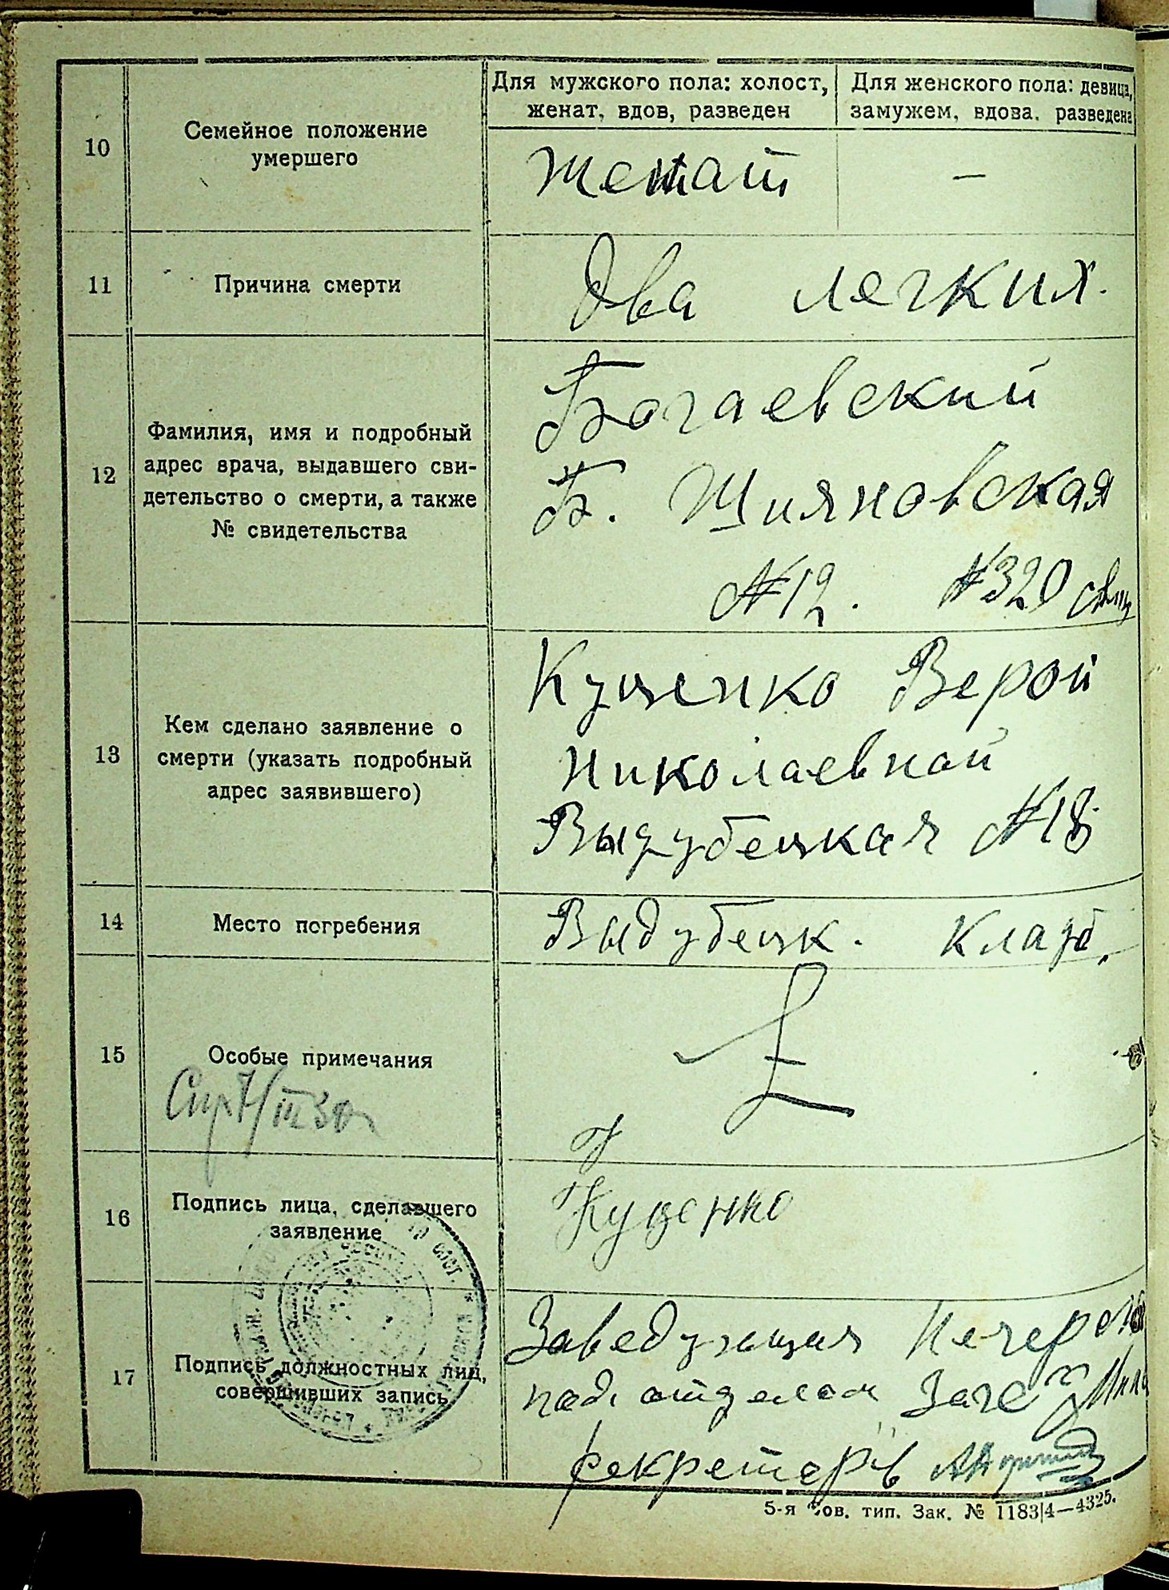 Для мужского пола: холост,
женат, вдов, разведен
Для женского пола: девица,
замужем, вдова, разведена
10
Семейное положение
умершего
женат
—
11
Причина смерти
Два легких.
12
Фамилия, имя и подробный
адрес врача, выдавшего сви-
детельство о смерти, а также
№ свидетельства
Богаевский
Б. Шияновская
№12. №320
13
Кем сделано заявление о
смерти (указать подробный
адрес заявившего)
Куценко Верой
Николаевной
Выдубецкая №18
14
Место погребения
Выдубецк. кладб.
15
Особые примечания
16
Подпись лица, сделавшего
заявление
Куценко
17
Подпись должностных лиц,
совершивших запись
Заведующая Печерс
под отделом Загс
секретерів
5-я Сов. тип. Зак. № 1183|4—4325.